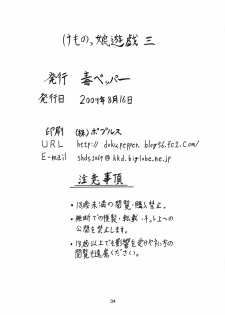 けもの。娘遊戯 三
発行 毒ペッパー
発行日 2009年8月16日
印刷 (株)ポプルス
URL http://dokupepper.blog56.fc2.com/
E-mail shds1069@kkd.biglobe.ne.jp
注意事項
・18歳未満の閲覧・購入禁止。
・無断での複製・転載・ネット上への
公開を禁止します。
・18歳以上でも影響を受けやすい方の
閲覧も遠慮ください。
34